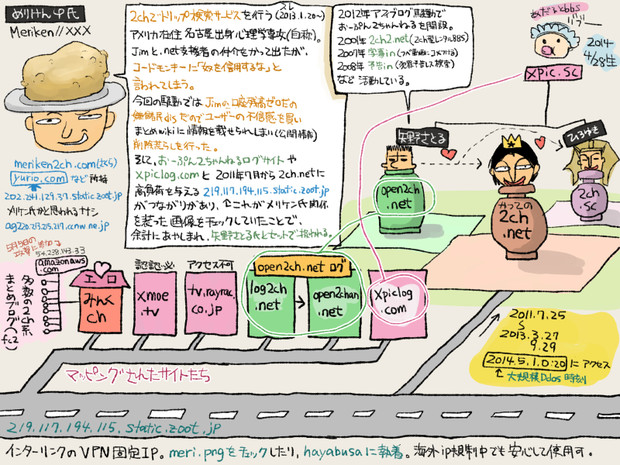 めりけん中氏
Meriken//XXX
meriken2ch.com(など)
yurio.com など所持
202.241.129.37.static.zoot.jp
メリケン氏かと思われるナゾ
2chでトリップ検索サービスを行う(2013.1.20〜)
スレ
アメリカ在住 名古屋出身 心理学専攻(自称)。
Jimと.net支援者の仲介をかって出たが、
コードモンキーに「奴を信用するな」と
言われてしまう。
今回の騒動では Jimの口座残高ゼロだの
無価値民disだのでユーザーの不信感を買い
まとめwikiに情報を載せられてしまい(公開情報)
削除荒らしを行った。
そして、おーぷん2ちゃんねるログサイトや
xpiclog.comと 2011年7月から2ch.netに
高負荷を与える 219.117.194.115.static.zoot.jp
がつながりがあり、
を装った画像をチェックしていたことで、
余計にあやしまれ、矢野さとる氏とセットで扱われる。
2012年 アフィブログ騒動で
おーぷん2ちゃんねるを開設。
2004年 2ch2.net(2ch型レンタルBBS)
2007年 学事in
2008年 予告in
など活動している。
あだるとbbs
2014
4/28生
xpic.sc
矢野さとる
open2ch
.net
やっての
2ch
.net
ひろゆき
2ch
.sc
54.238.143.33
amazonaws
.com
多数の2ch系
まとめブログへ
fc2
エロ
みんく
ch
認証必
xmoe
.tv
アクセス不可
tv.rayrac
.co.jp
open2ch.net ログ
log2ch
.net
open2han
.net
xpiclog
.com
マッピングされたサイトたち
2011.7.25
〜
2013.3.27
9.29
2014.5.1.0:20 にアクセス
↑大規模Ddos時刻
219.117.194.115.static.zoot.jp
インターリンクのVPN固定IP。meri.pngをチェックしたり、hayabusaに執着。海外ip規制中でも安心して使用可。